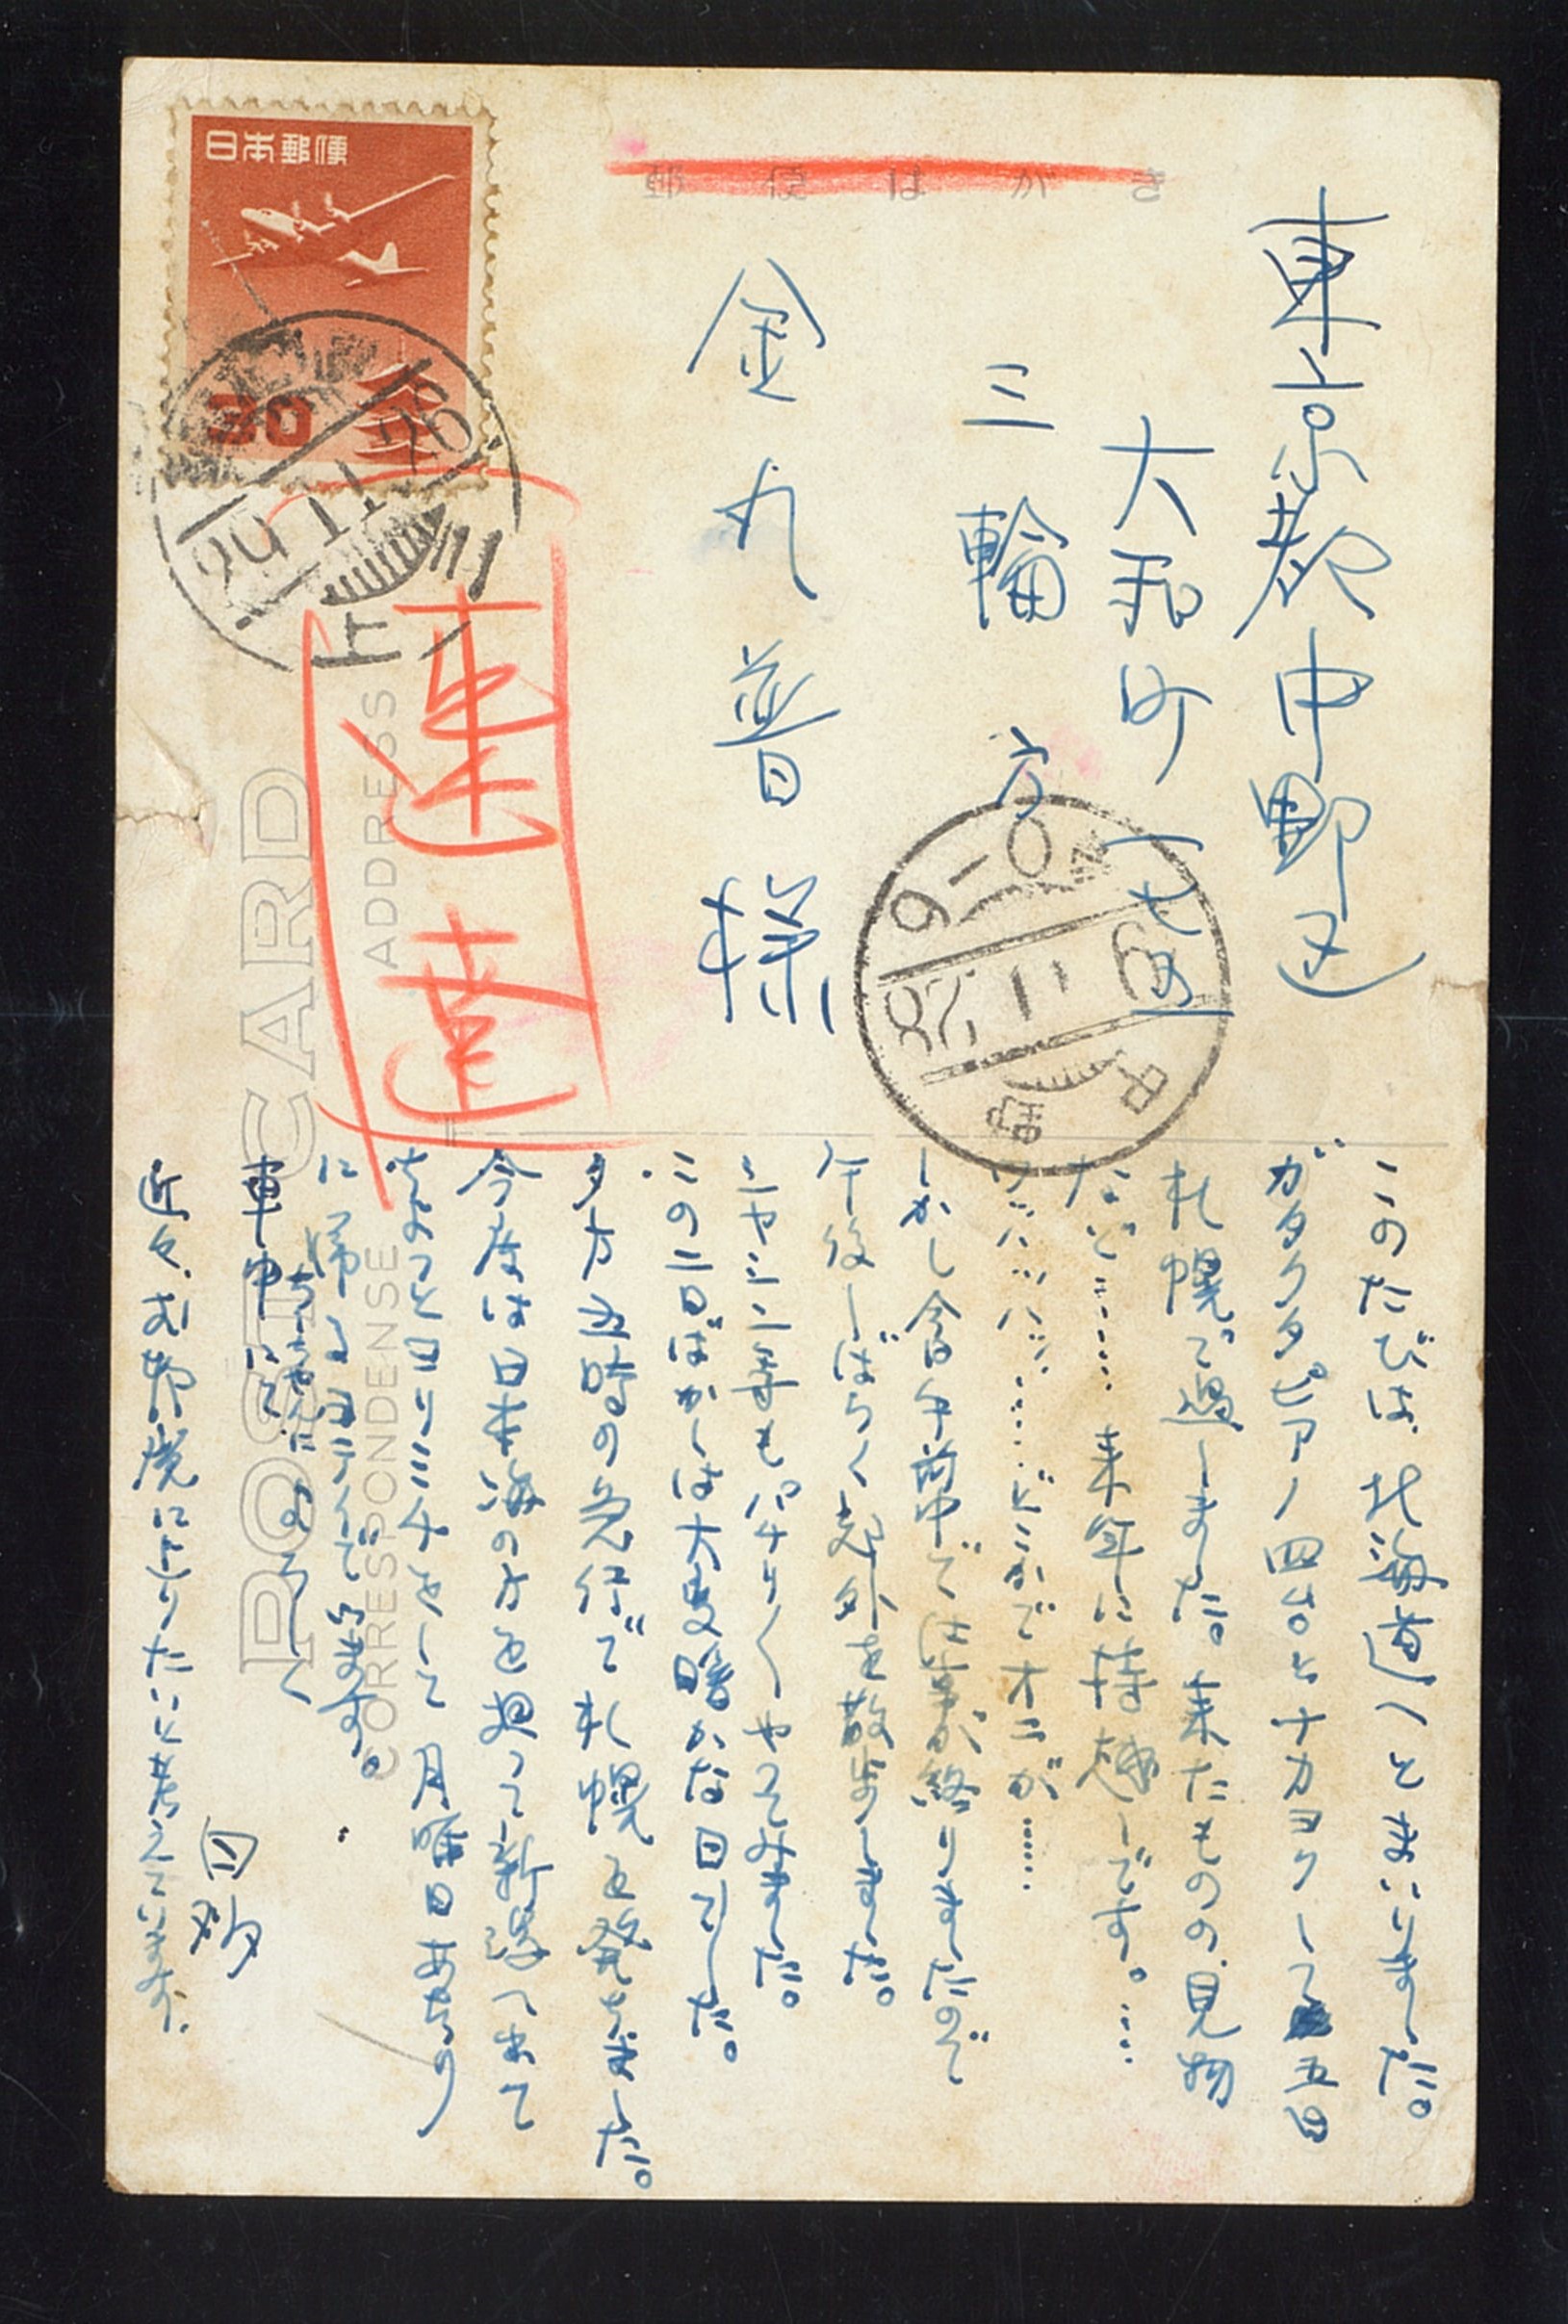 郵便はがき
東京都中野区
大和町一七四
三輪方
金丸晋様
日本郵便
30
速達
POST CARD
ADDRESS
CORRESPONDENSE
中野
28.11.
9-0
このたびは、北海道へとまいりました。
ガタクタピアノ四台とナカヨクして五日
札幌で過しました。来たものの、見物
など…… 来年に持越しです。……
ワハハハハ……どこかでオニが……
しかし今日午前中で仕事が終りましたので
午後しばらく郊外を散歩しました。
シャシン等もパチリくやってみました。
この二日ばかしは大変暖かな日でした。
夕方五時の急行で札幌を発ちました。
今度は日本海の方を廻って新潟へ出て
ちょっと日より ミチをして 月曜日あたり
に帰る
います。
車中にて
近々、お邪魔に上りたいと考えています。